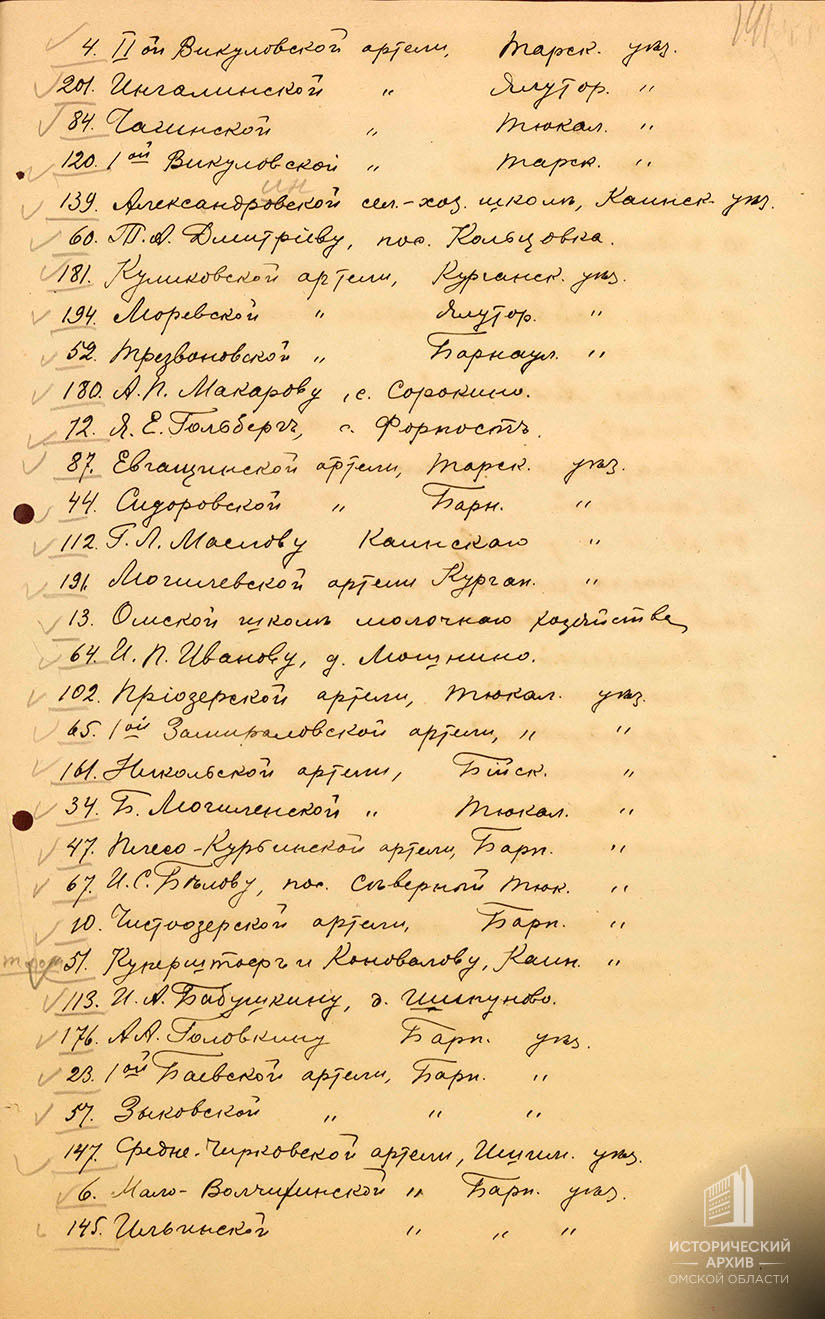 4. IIой Викуловской артели, Тарск. уѣз.
201. Ингалинской " Ялутор. "
84. Чагинской " Тюкал. "
120. 1ой Викуловской " Тарск. "
ин
139. Александровской сел.-хоз. школѣ, Каинск. уѣз.
60. Т.А. Дмитрiеву, пос. Кольцовка.
181. Куликовской артели, Курганск. уѣз.
194. Моревской " Ялутор. "
52. Трезвоновской " Барнаул. "
180. А.П. Макарову, с. Сорокино.
12. Я.Е. Гольбергъ, с. Форпостъ.
87. Евгащинской артели, Тарск. уѣз.
44. Сидоровской " Барн. "
112. Г.Л. Маслову Каинскаго "
191. Могилевской артели Курган. "
13. Омской школѣ молочнаго хозяйства
64. И.П. Иванову, д. Мощнино.
102. Прiозерской артели, Тюкал. уѣз.
65. 1ой Замираловской артели, " "
161. Никольской артели, Бiйск. "
34. Б. Могиленской " Тюкал. "
47. Плесо-Курьинской артели, Барн. "
67. И.С. Бѣлову, пос. Сѣверный Тюк. "
10. Чистоозерской артели, Барн. "
51. Куперштоеръ и Коновалову, Каин. "
113. И.А. Бабушкину, д. Шипуново.
176. А.А. Головкину Барн. уѣз.
23. 1ой Баевской артели, Барн. "
57. Зыковской " " "
147. Средне-Чирковской артели, Ишим. уѣз.
6. Мало-Волчихинской " Барн. уѣз.
145. Ильинской " " "
ИСТОРИЧЕСКИЙ
АРХИВ
ОМСКОЙ ОБЛАСТИ